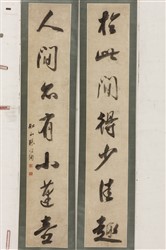 於此間得少佳趣
人間亦有小蓬壺